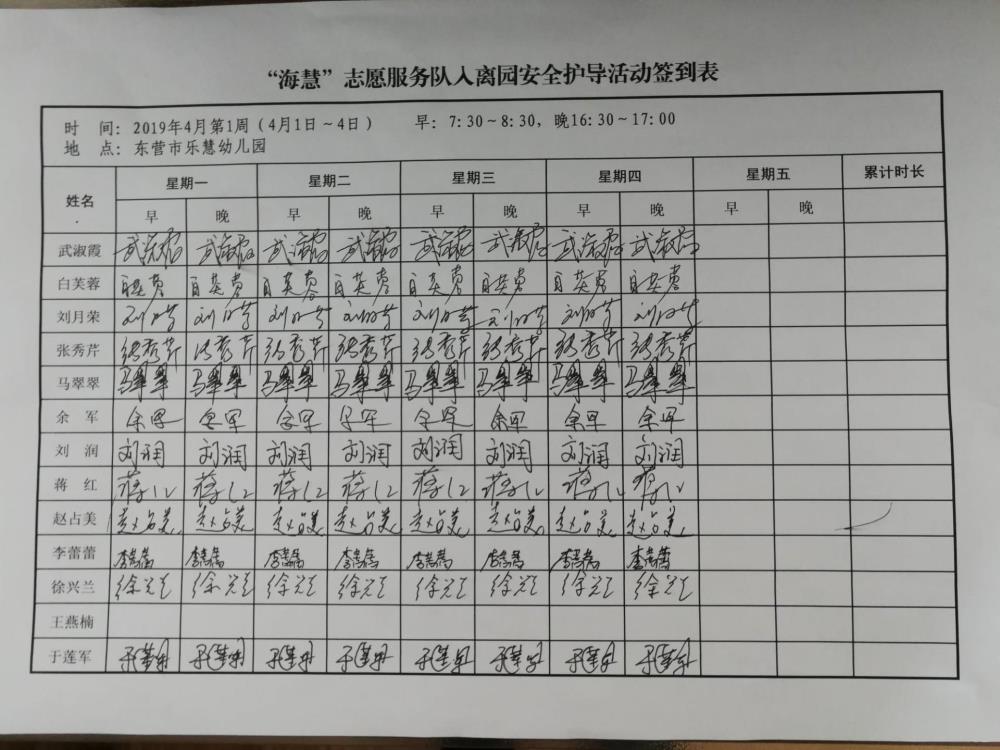 “海慧”志愿服务队入离园安全护导活动签到表
时 间：2019年4月第1周（4月1日～4日） 早：7:30～8:30，晚16:30～17:00
地 点：东营市乐慧幼儿园
姓名 星期一 星期二 星期三 星期四 星期五 累计时长
早 晚 早 晚 早 晚 早 晚 早 晚
武淑霞 武淑霞 武淑霞 武淑霞 武淑霞 武淑霞 武淑霞 武淑霞 武淑霞
白芙蓉 白芙蓉 白芙蓉 白芙蓉 白芙蓉 白芙蓉 白芙蓉 白芙蓉 白芙蓉
刘月荣 刘月荣 刘月荣 刘月荣 刘月荣 刘月荣 刘月荣 刘月荣 刘月荣
张秀芹 张秀芹 张秀芹 张秀芹 张秀芹 张秀芹 张秀芹 张秀芹 张秀芹
马翠翠 马翠翠 马翠翠 马翠翠 马翠翠 马翠翠 马翠翠 马翠翠 马翠翠
余 军 余军 余军 余军 余军 余军 余军 余军 余军
刘 润 刘润 刘润 刘润 刘润 刘润 刘润 刘润 刘润
蒋 红 蒋红 蒋红 蒋红 蒋红 蒋红 蒋红 蒋红 蒋红
赵占美 赵占美 赵占美 赵占美 赵占美 赵占美 赵占美 赵占美 赵占美
李蕾蕾 李蕾蕾 李蕾蕾 李蕾蕾 李蕾蕾 李蕾蕾 李蕾蕾 李蕾蕾 李蕾蕾
徐兴兰 徐兴兰 徐兴兰 徐兴兰 徐兴兰 徐兴兰 徐兴兰 徐兴兰 徐兴兰
王燕楠
于莲军 于莲军 于莲军 于莲军 于莲军 于莲军 于莲军 于莲军 于莲军